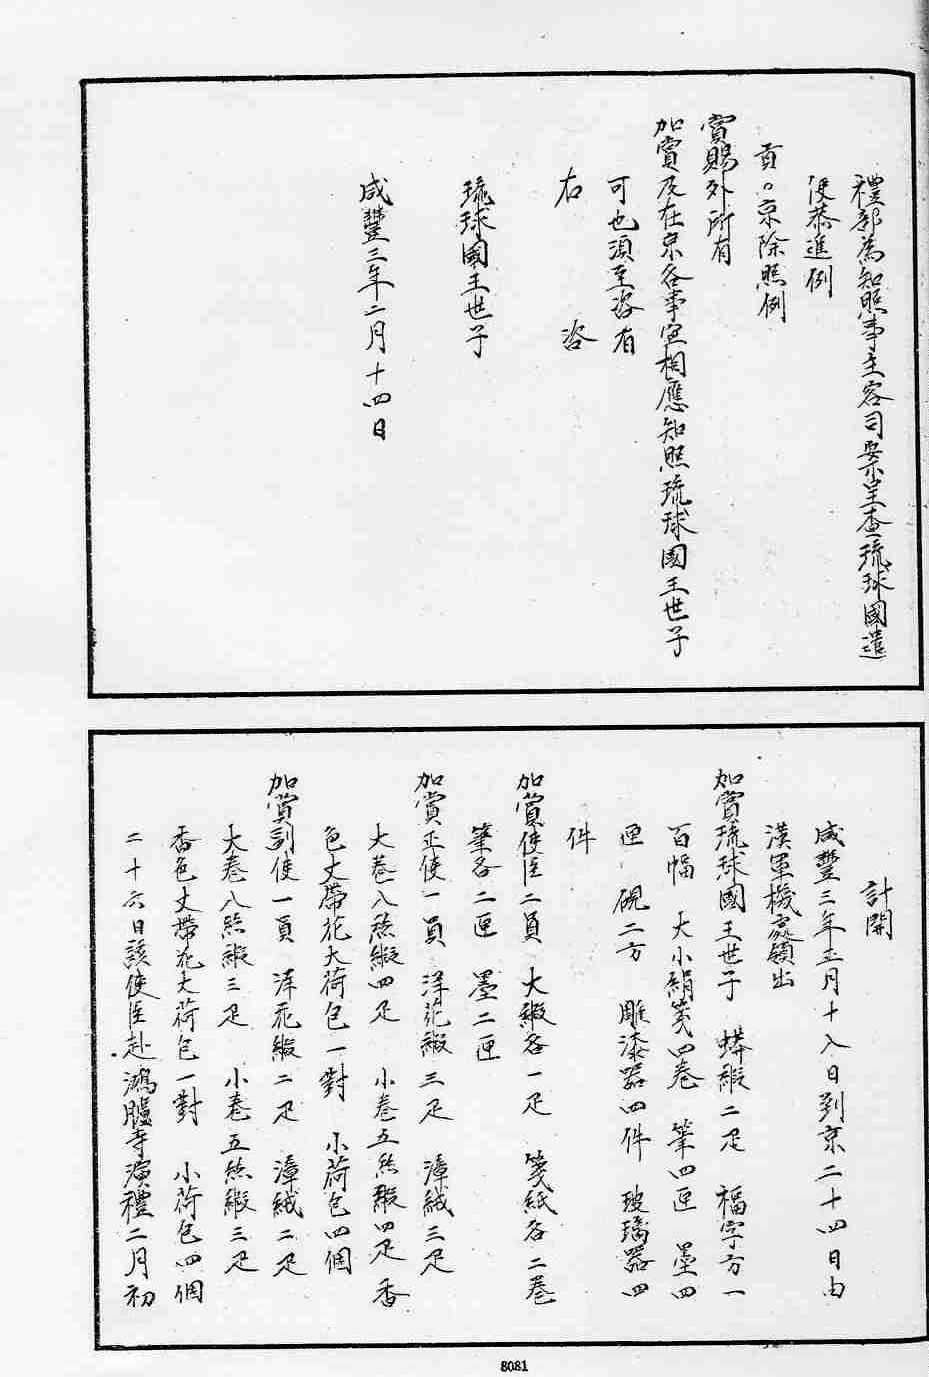 禮部為知照事主客司案呈查琉球國遣
使恭進例
貢。京除照例
賞賜外所有
加賞及在京各事宜相應知照琉球國王世子
可也須至咨者
右咨
琉球國王世子
咸豐三年二月十四日
計開
咸豐三年正月十八日到京二十四日由
漢軍機處領出
加賞琉球國王世子 蟒緞二疋 福字方一
百幅 大小絹箋四卷 筆四匣 墨四
匣 硯二方 雕漆器四件 玻璃器四
件
加賞使臣二員 大緞各一疋 箋紙各二卷
筆各二匣 墨二匣
加賞正使一員 洋花緞三疋 漳絨三疋
大卷八絲緞四疋 小卷五絲緞四疋 香
色丈帶花大荷包一對 小荷包四個
加賞副使一員 洋花緞二疋 漳絨二疋
大卷八絲緞三疋 小卷五絲緞三疋
香色丈帶花大荷包一對 小荷包四個
二十六日該使臣赴鴻臚寺演禮二月初
8081